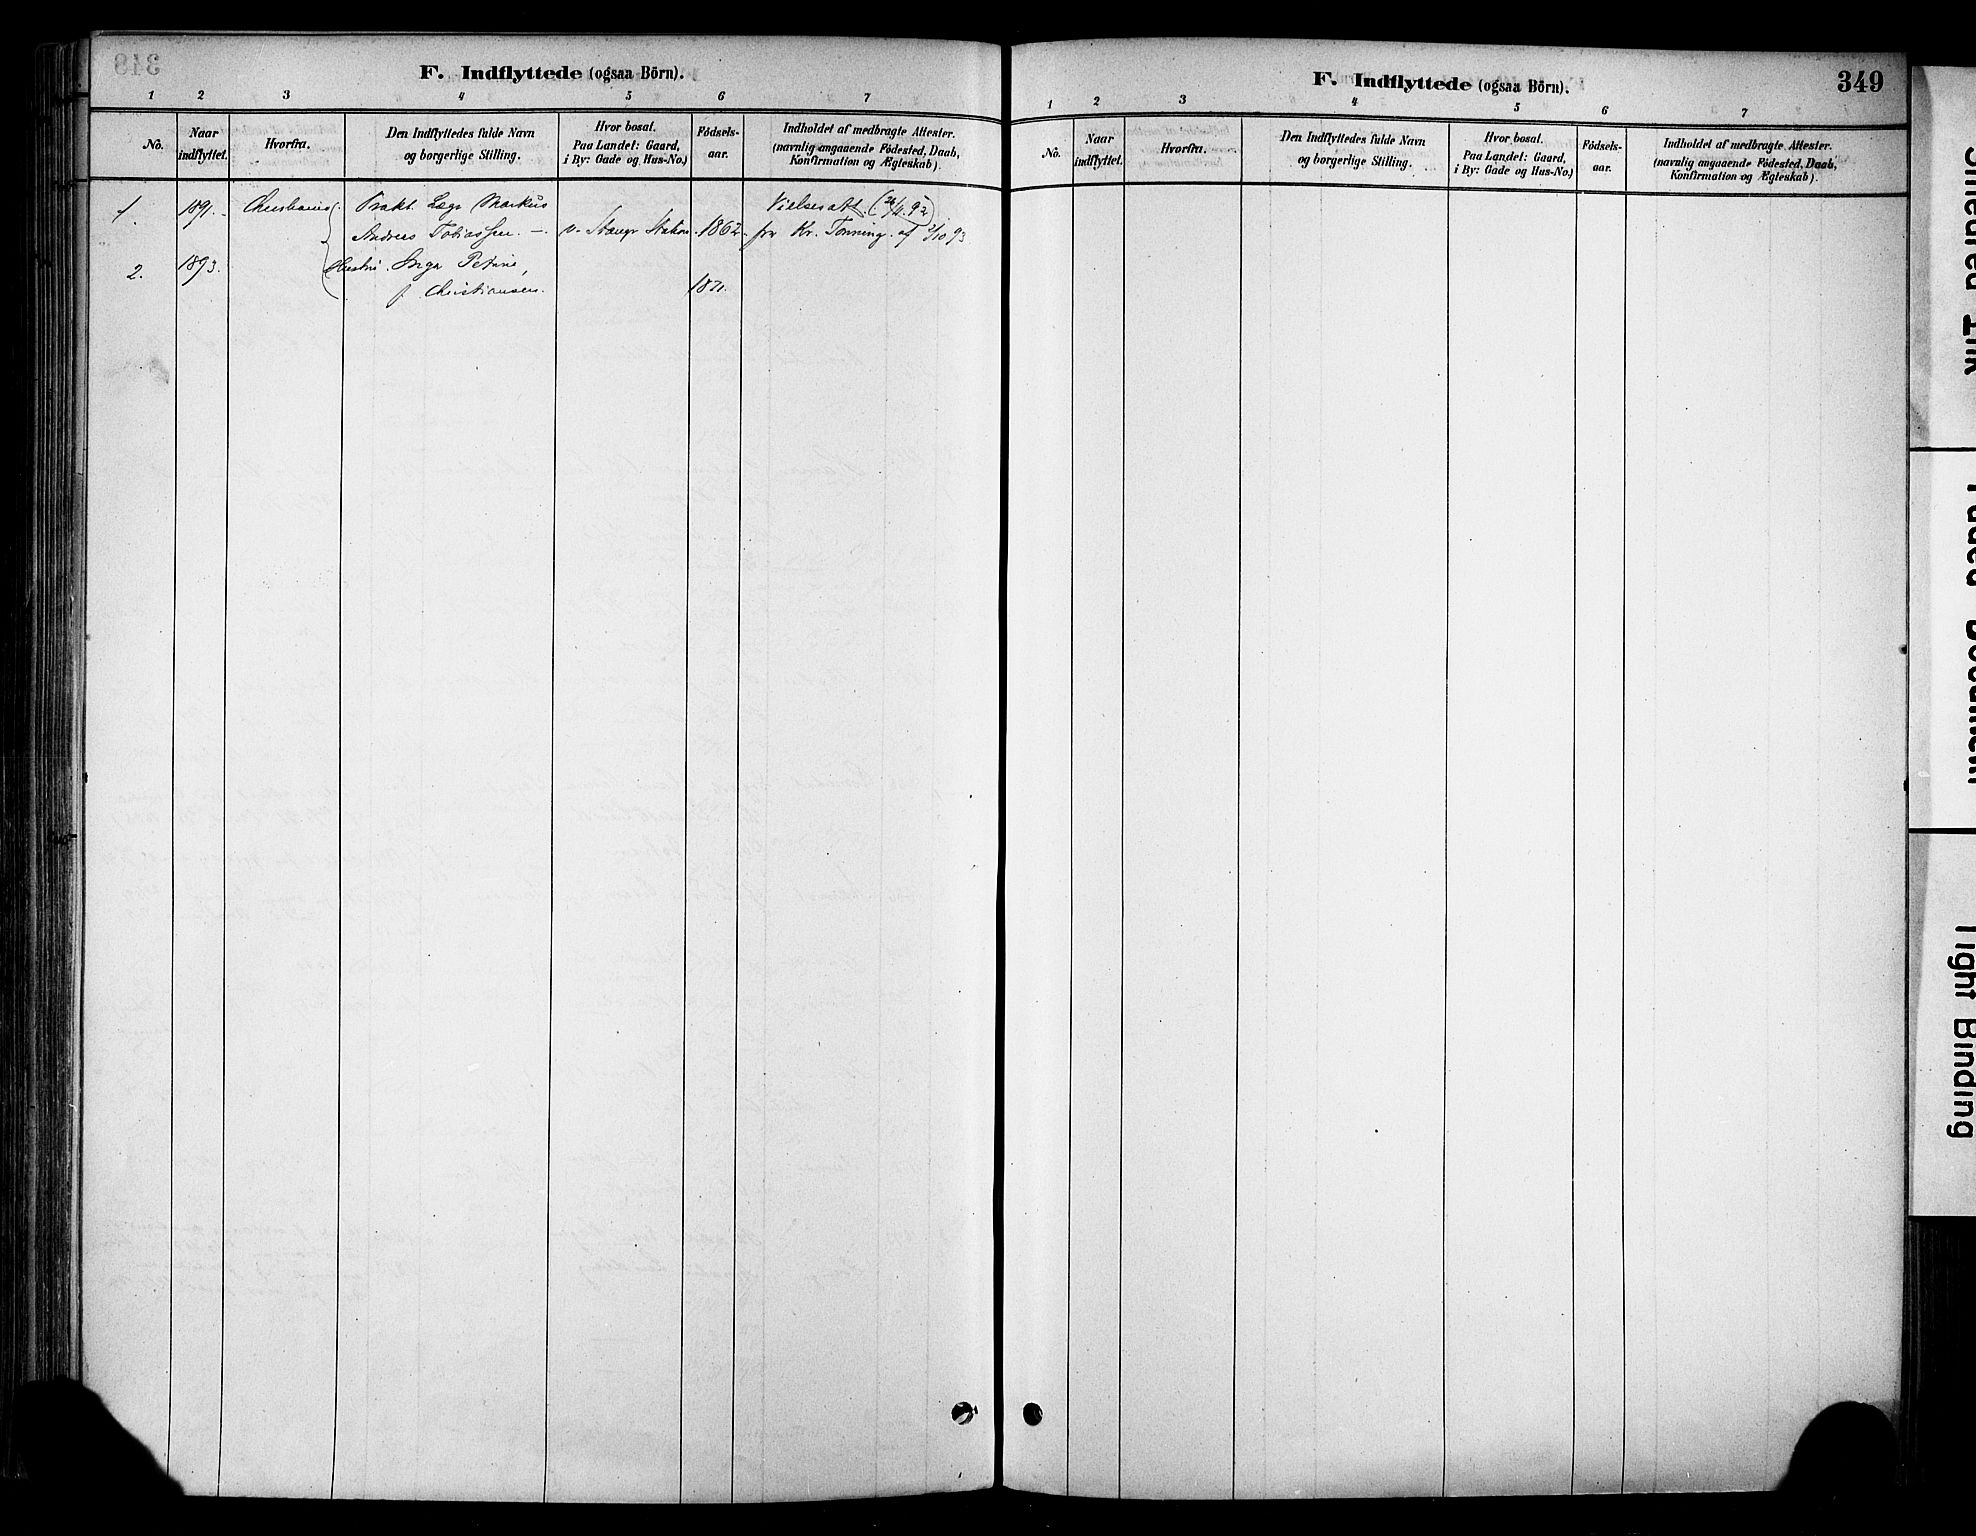 F. Indflyttede (ogsaa Börn).
1 2 3 4 5 6 7
No. Naar indflyttet. Hvorfra. Den Indflyttedes fulde Navn og borgerlige Stilling. Hvor bosat. Paa Landet: Gaard, i By: Gade og Hus-No.) Fødsels-aar. Indholdet af medbragte Attester. (navnlig angaaende Fødested, Daab, Konfirmation og Ægteskab).
1. 1891. Christiania. Prakt. Læge Markus Vielsesatt.
Andreas Tobiassen. v. Stange Station 1862. fra Kr. Tonning. af 2/10 93
2. 1893. Hustru Inga Petrine,
f. Christiansen. 1871.
F. Indflyttede (ogsaa Börn).
349
1 2 3 4 5 6 7
No. Naar indflyttet. Hvorfra. Den Indflyttedes fulde Navn og borgerlige Stilling. Hvor bosat. Paa Landet: Gaard, i By: Gade og Hus-No.) Fødsels-aar. Indholdet af medbragte Attester. (navnlig angaaende Fødested, Daab, Konfirmation og Ægteskab).
Smeared Ink
Faded Document
Tight Binding